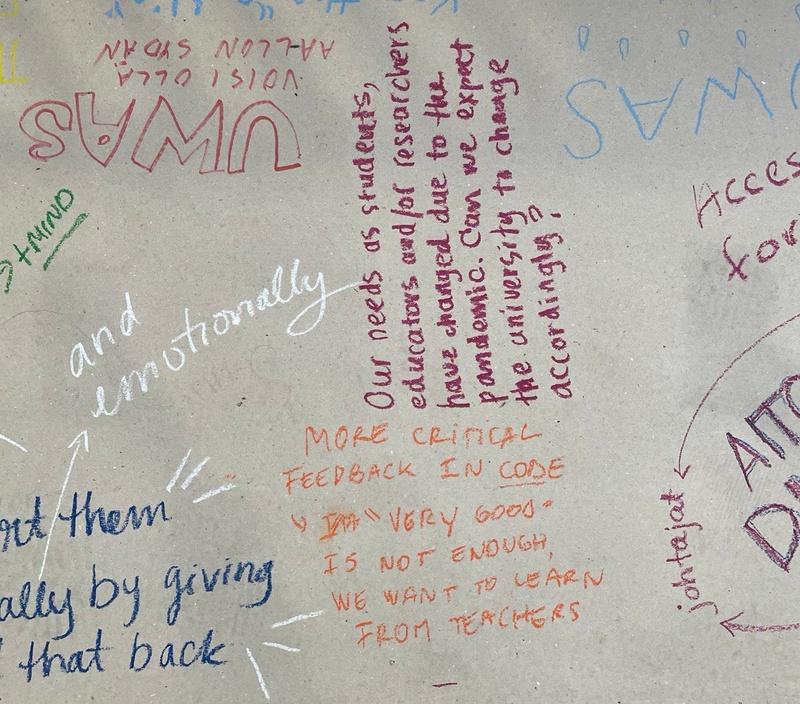 UWAS
VOISI OLLA
AALLON SYDÄN
UWAS
Our needs as students,
educators and/or researchers
have changed due to the
pandemic. Can we expect
the university to change
accordingly?
and
emotionally
them
by giving
that back
MORE CRITICAL
FEEDBACK IN CODE
"VERY GOOD"
IS NOT ENOUGH,
WE WANT TO LEARN
FROM TEACHERS
for
johtajat